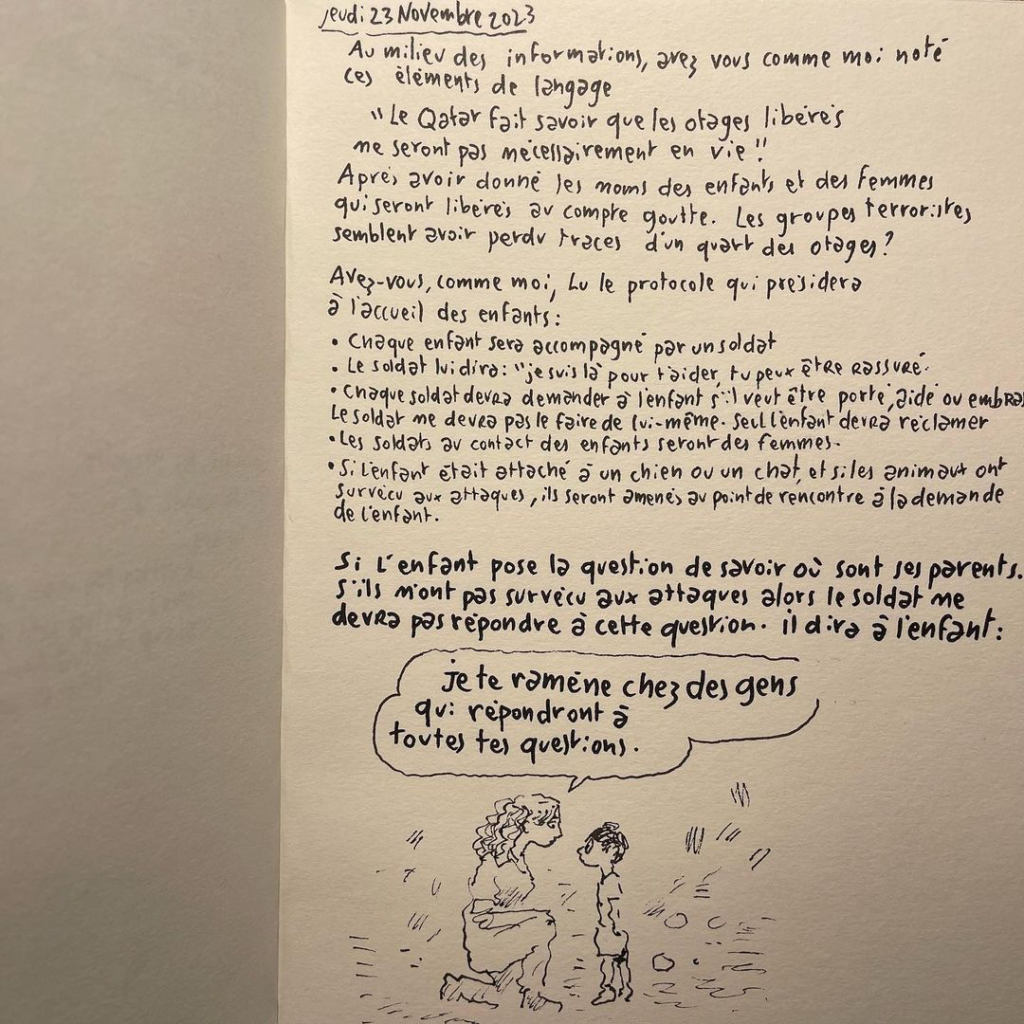 jeudi 23 Novembre 2023
Au milieu des informations, avez vous comme moi noté
ces éléments de langage
"Le Qatar fait savoir que les otages libérés
ne seront pas nécessairement en vie"
Après avoir donné les noms des enfants et des femmes
qui seront libérés au compte goutte. Les groupes terroristes
semblent avoir perdu traces d'un quart des otages?
Avez-vous, comme moi, Lu le protocole qui présidera
à l'accueil des enfants:
• Chaque enfant sera accompagné par un soldat
• Le soldat lui dira: "je suis là pour t'aider, tu peux être rassuré.
• Chaque soldat devra demander à l'enfant s'il veut être porté, aidé ou embras
Le soldat ne devra pas le faire de lui-même. Seul l'enfant devra réclamer
• Les soldats au contact des enfants seront des femmes.
• Si l'enfant était attaché à un chien ou un chat, et si les animaux ont
survécu aux attaques, ils seront amenés au point de rencontre à la demande
de l'enfant.
Si l'enfant pose la question de savoir où sont ses parents.
S'ils n'ont pas survécu aux attaques alors le soldat ne
devra pas répondre à cette question. il dira à l'enfant:
je te ramène chez des gens
qui répondront à
toutes tes questions.